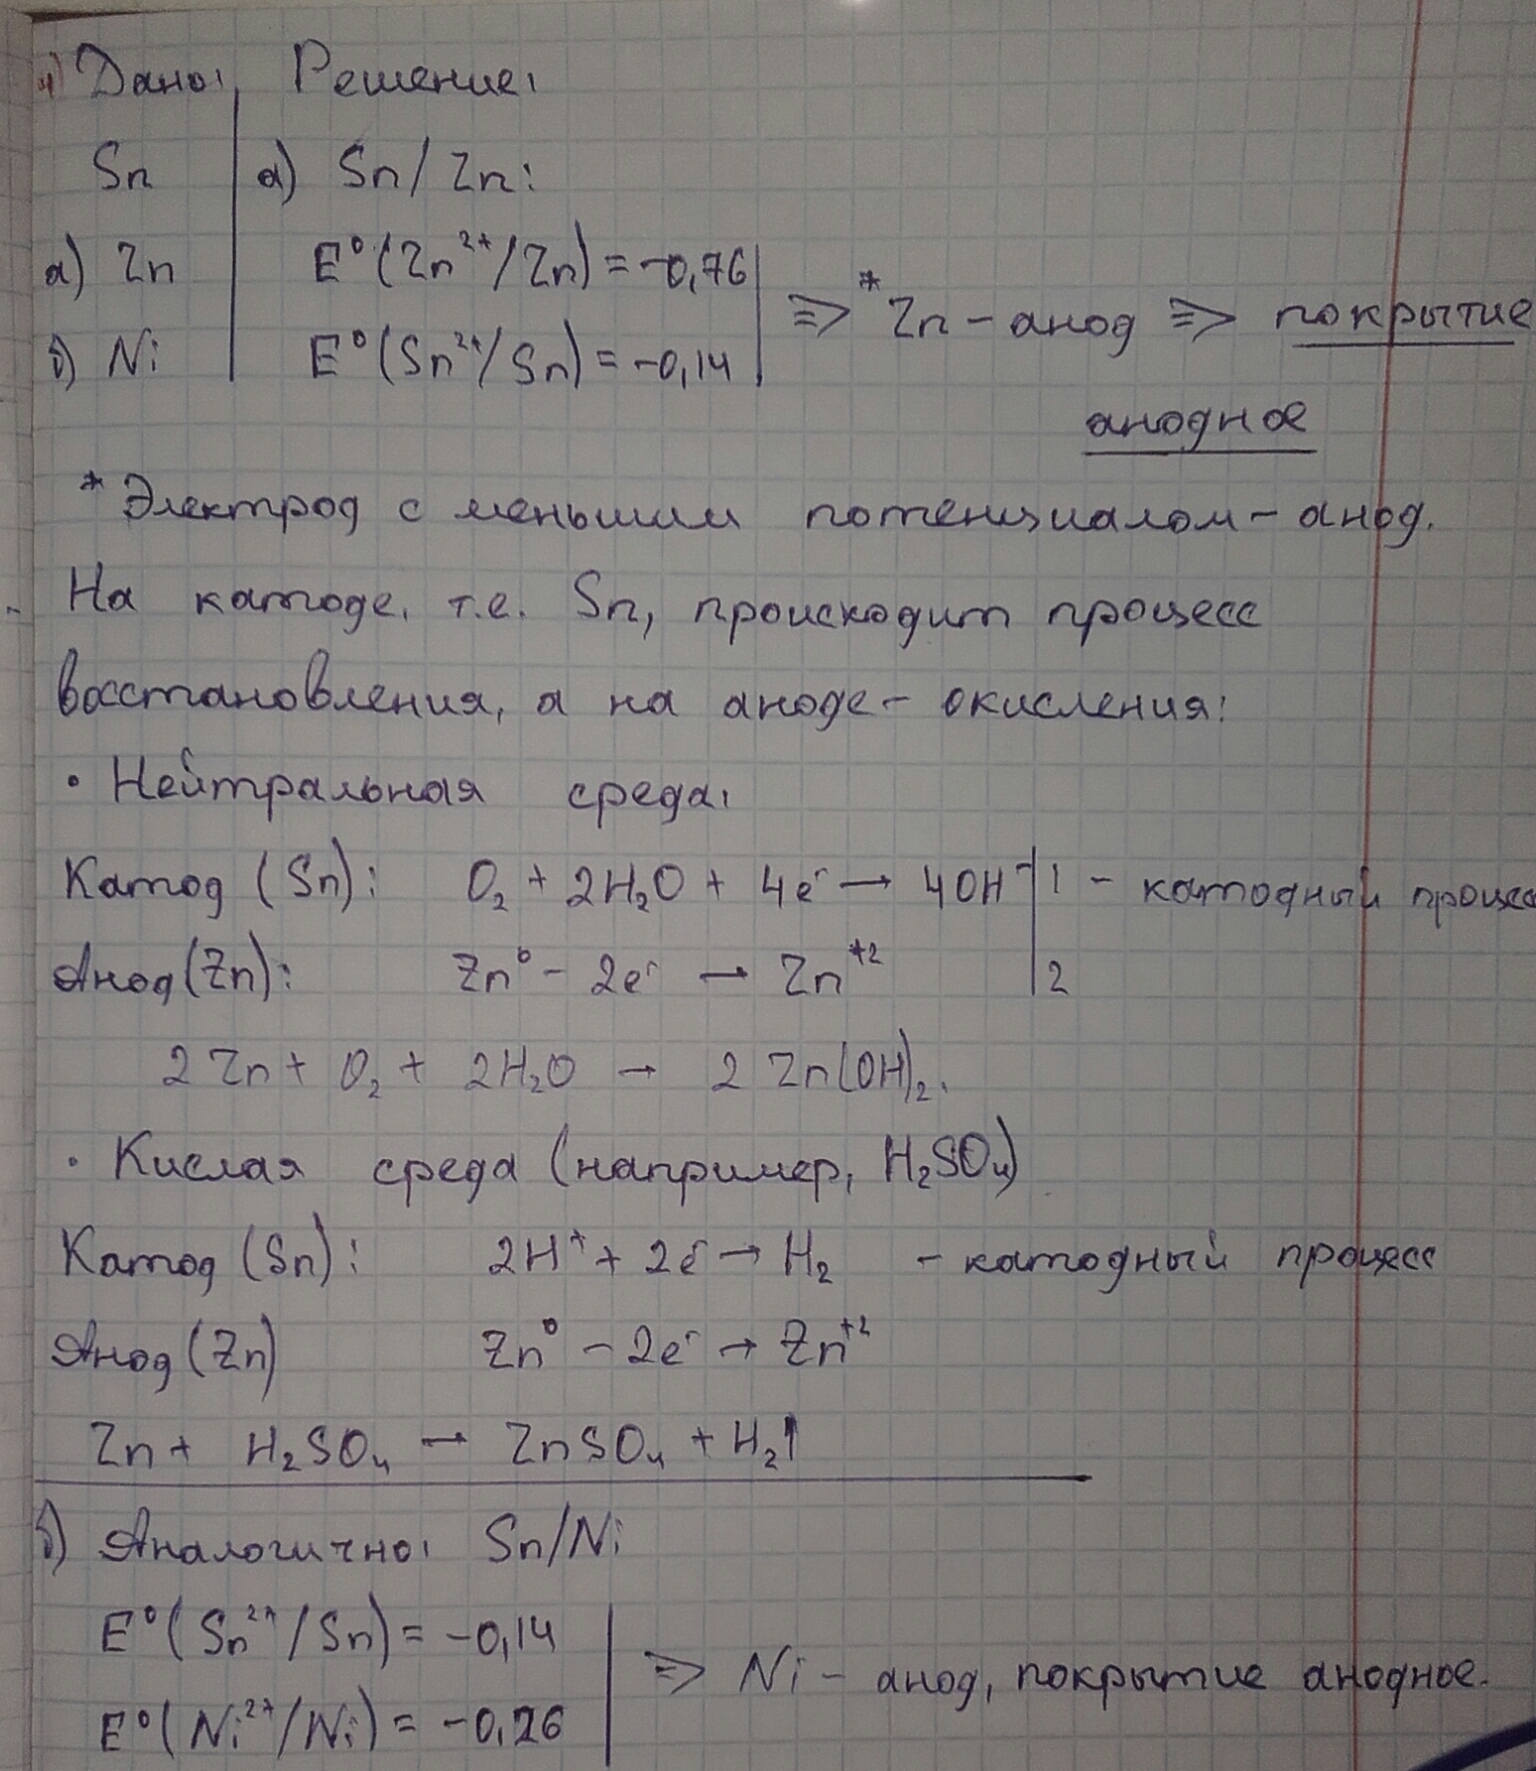 4) Дано: Решение:
Sn а) Sn/Zn:
а) Zn E°(Zn²⁺/Zn) = -0,76
⇒ *Zn - анод ⇒ покрытие
б) Ni E°(Sn²⁺/Sn) = -0,14
анодное
* Электрод с меньшим потенциалом - анод.
На катоде, т.е. Sn, происходит процесс
восстановления, а на аноде - окисления:
• Нейтральная среда:
Катод (Sn): O₂ + 2H₂O + 4e⁻ → 4OH⁻ | 1 - катодный процесс
Анод (Zn): Zn⁰ - 2e⁻ → Zn⁺² | 2
2Zn + O₂ + 2H₂O → 2Zn(OH)₂.
• Кислая среда (например, H₂SO₄)
Катод (Sn): 2H⁺ + 2e⁻ → H₂ - катодный процесс
Анод (Zn) Zn⁰ - 2e⁻ → Zn⁺²
Zn + H₂SO₄ → ZnSO₄ + H₂↑
б) Аналогично: Sn/Ni
E°(Sn²⁺/Sn) = -0,14
⇒ Ni - анод, покрытие анодное.
E°(Ni²⁺/Ni) = -0,26